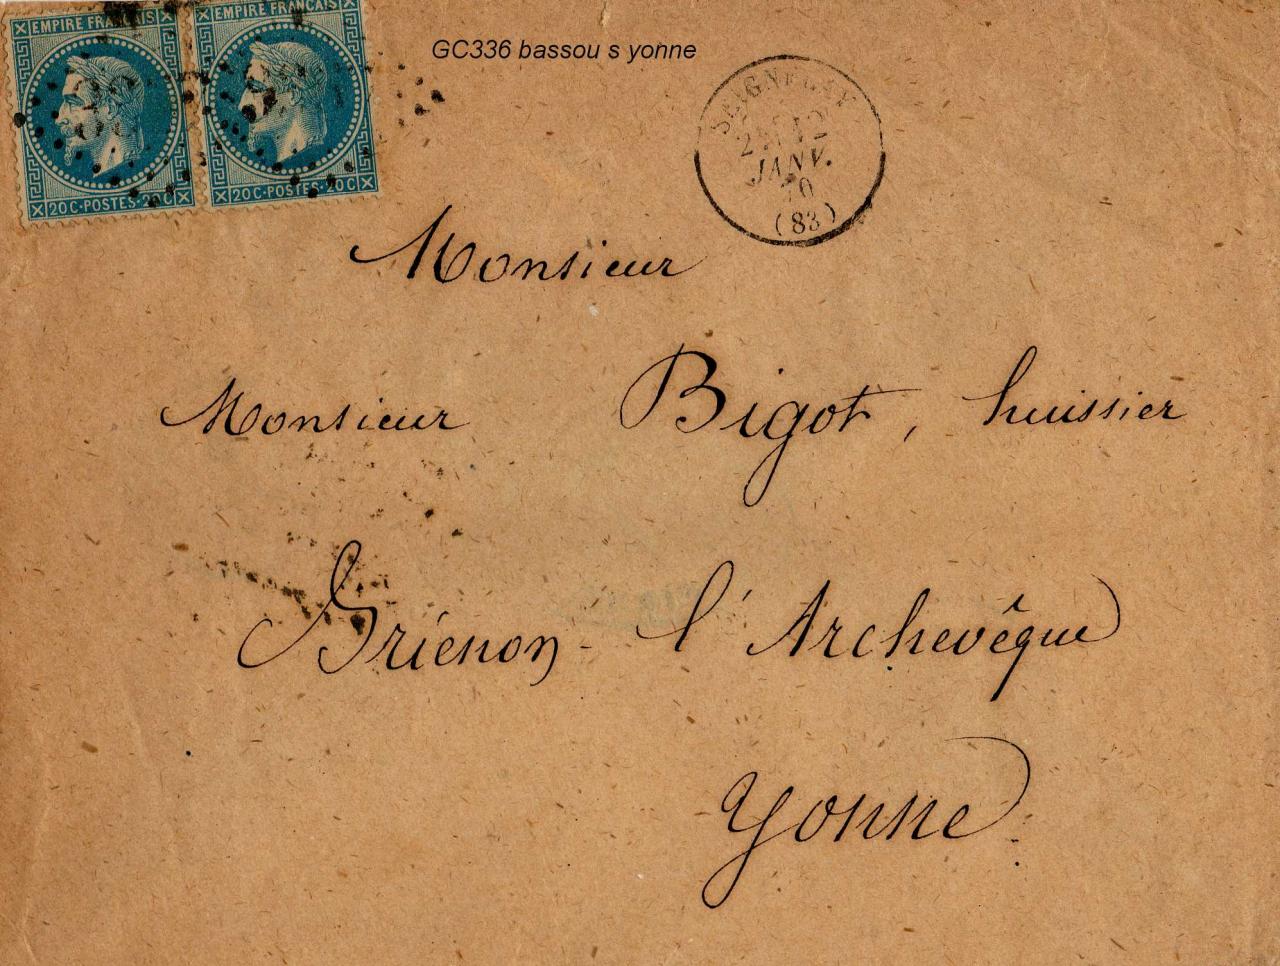 EMPIRE FRANÇAIS
20 C·POSTES·20 C
EMPIRE FRANÇAIS
20 C·POSTES·20 C
GC336 bassou s yonne
SEIGNELAY
12
JANV.
70
(83)
Monsieur
Monsieur Bigot, huissier
Briénon-l'Archevêque
Yonne